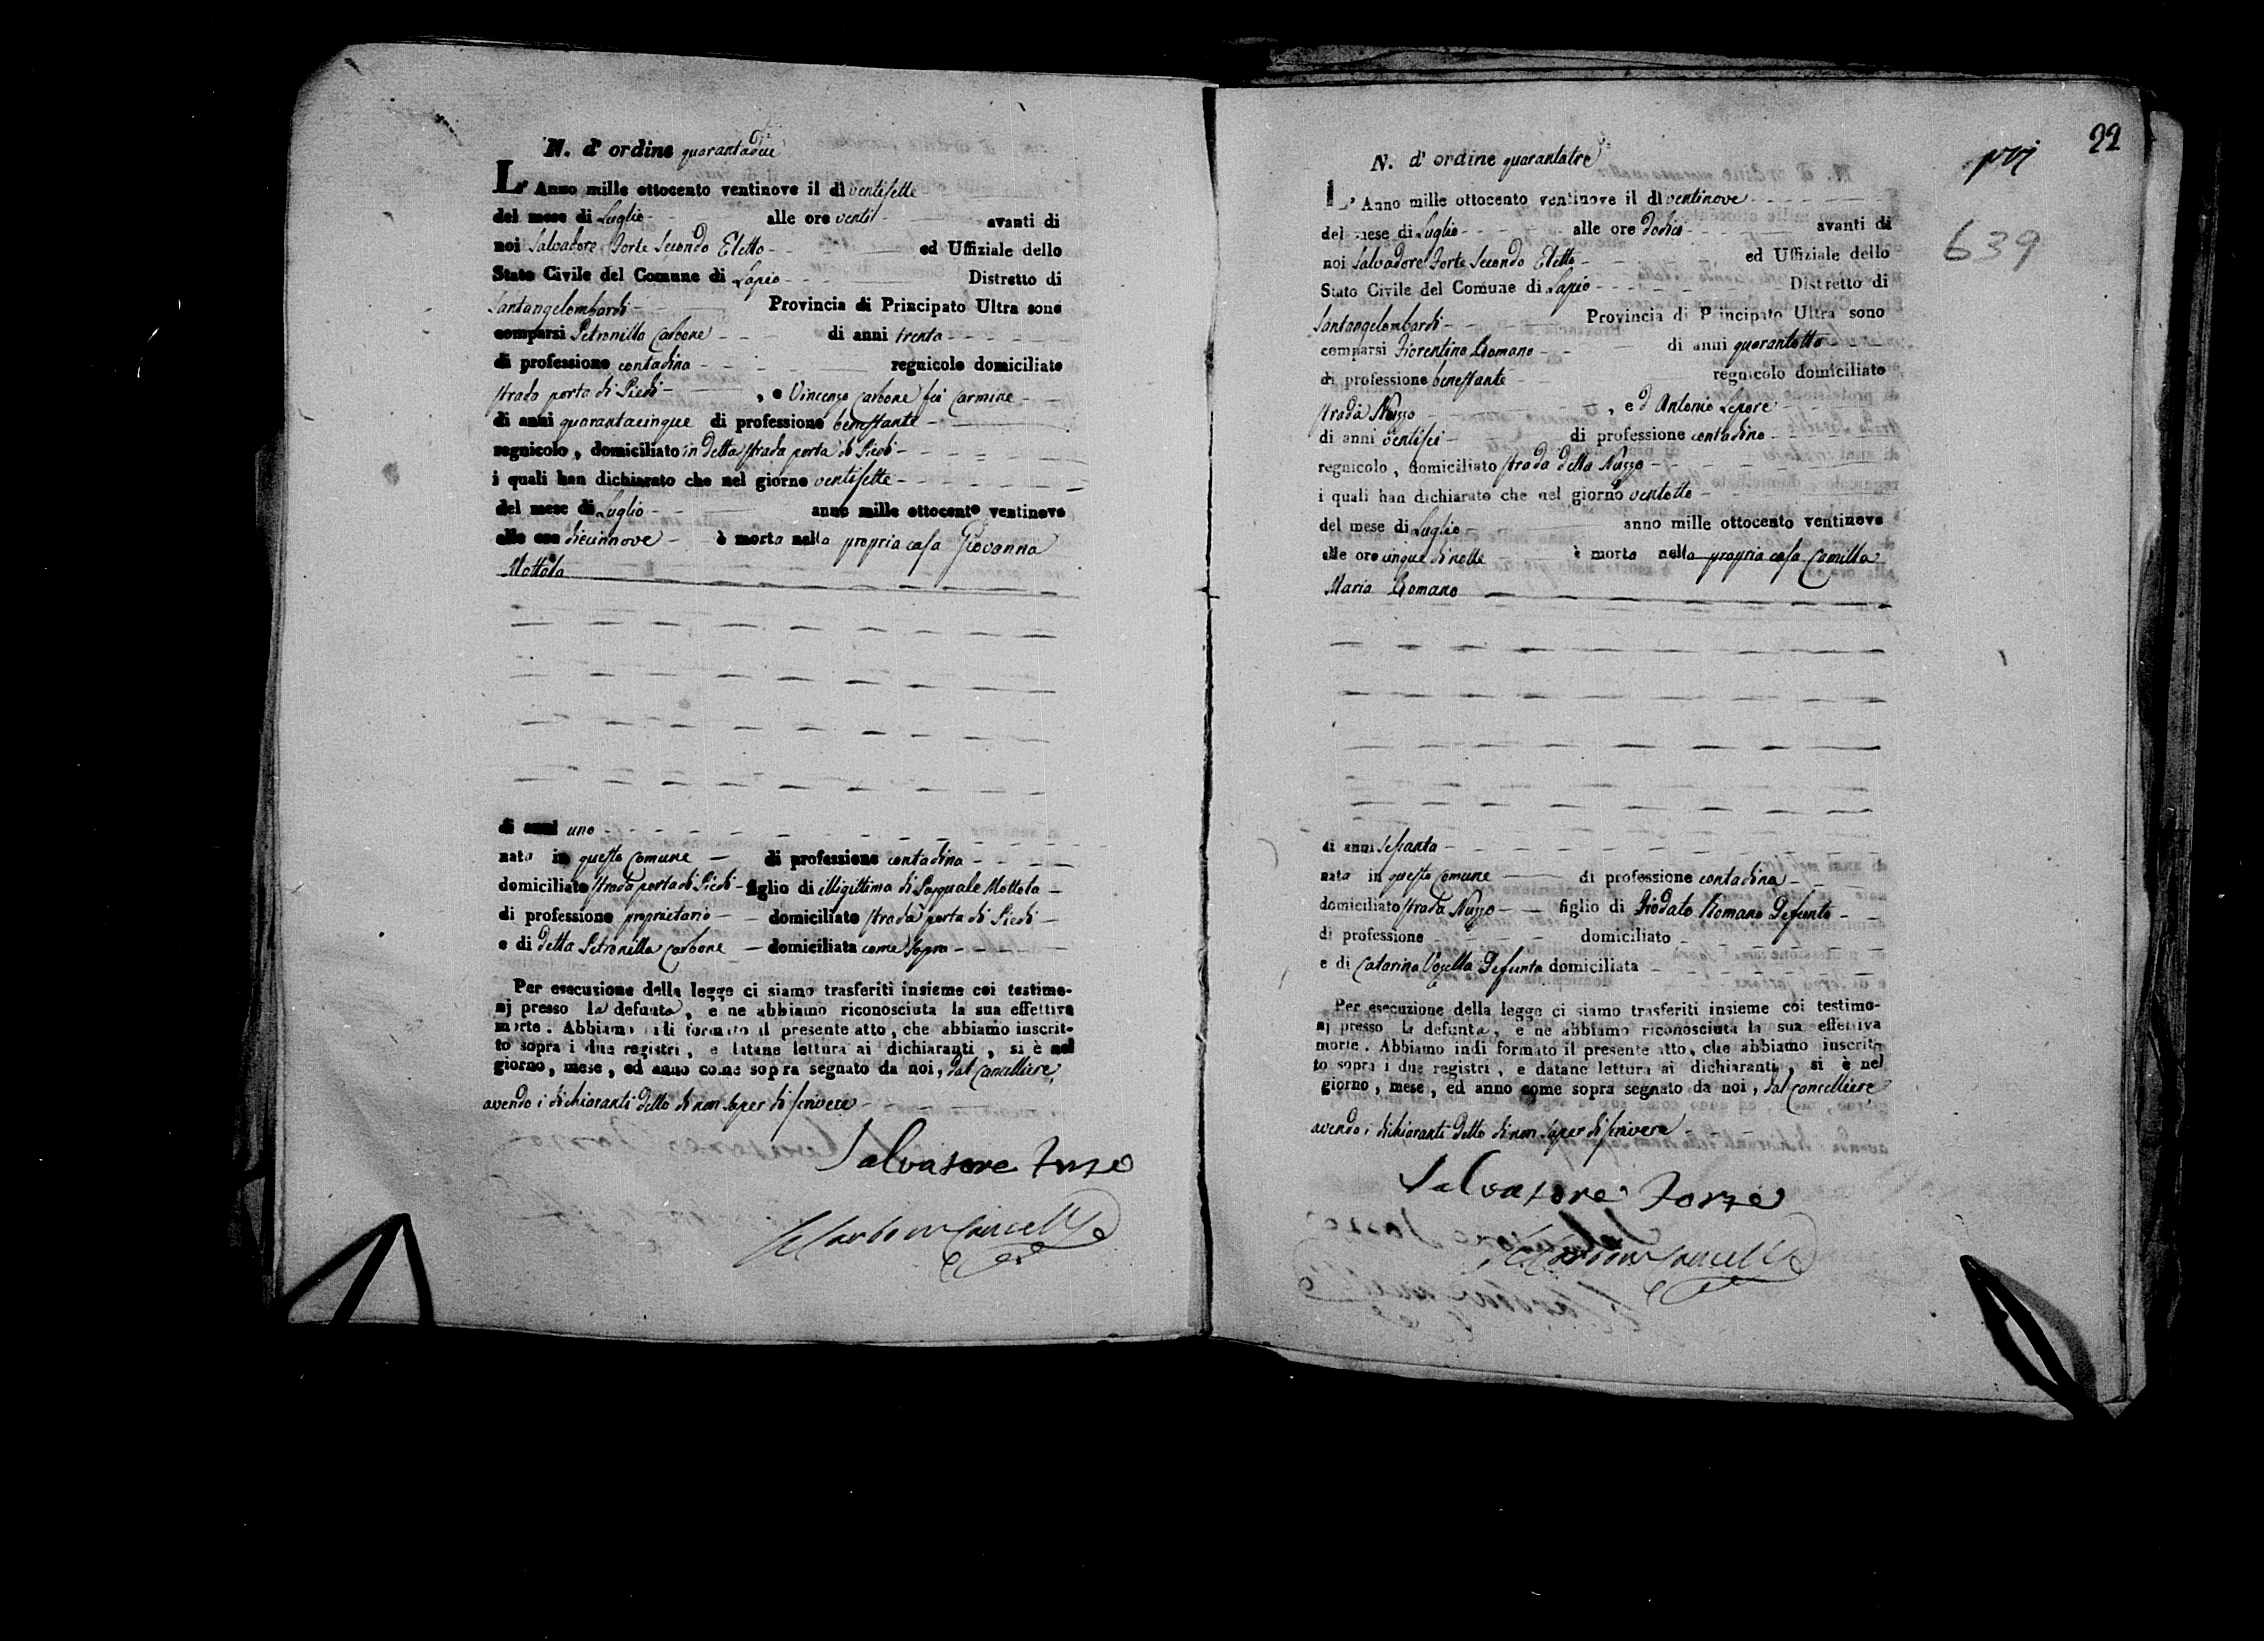 N. d' ordine quarantadue
L' Anno mille ottocento ventinove il dì ventisette
del mese di Luglio alle ore venti avanti di
noi Salvadore Forte Secondo Eletto ed Uffiziale dello
Stato Civile del Comune di Lapio Distretto di
Santangelombardi Provincia di Principato Ultra sono
comparsi Petronilla Carbone di anni trenta
di professione contadina regnicolo domiciliato
strada porta di Piedi , e Vincenzo Carbone fu Carmine
di anni quarantacinque di professione benestante
regnicolo , domiciliato in detta strada porta di Piedi
i quali han dichiarato che nel giorno ventisette
del mese di Luglio anno mille ottocento ventinove
alle ore diecinnove è morta nella propria casa Giovanna
Mottola
di anni uno
nata in questo Comune di professione contadina
domiciliato strada porta di Piedi figlio di illigittima di Pasquale Mottola
di professione proprietario domiciliato strada porta di Piedi
e di detta Petronilla Carbone domiciliata come sopra
Per esecuzione della legge ci siamo trasferiti insieme coi testimo-
nj presso la defunta , e ne abbiamo riconosciuta la sua effettiva
morte . Abbiamo indi formato il presente atto , che abbiamo inscrit-
to sopra i due registri , e datane lettura ai dichiaranti , si è nel
giorno , mese , ed anno come sopra segnato da noi , dal Cancelliere
avendo i dichiaranti detto di non saper di scrivere
Salvatore Forte
Carbone Cancell
22
639
N. d' ordine quarantatre
L' Anno mille ottocento ventinove il dì ventinove
del mese di Luglio alle ore dodici avanti di
noi Salvadore Forte Secondo Eletto ed Uffiziale dello
Stato Civile del Comune di Lapio Distretto di
Santangelombardi Provincia di Principato Ultra sono
comparsi Fiorentino Romano di anni quarantotto
di professione benestante regnicolo domiciliato
strada Nuzzo , ed Antonio Lepore
di anni ventisei di professione contadino
regnicolo , domiciliato strada detta Nuzzo
i quali han dichiarato che nel giorno ventotto
del mese di Luglio anno mille ottocento ventinove
alle ore cinque di notte è morta nella propria casa Camilla
Maria Romano
di anni sessanta
nata in questo Comune di professione contadina
domiciliato strada Nuzzo figlio di Diodato Romano Defunto
di professione domiciliato
e di Catarina Defunta domiciliata
Per esecuzione della legge ci siamo trasferiti insieme coi testimo-
nj presso la defunta , e ne abbiamo riconosciuta la sua effettiva
morte . Abbiamo indi formato il presente atto , che abbiamo inscrit-
to sopra i due registri , e datane lettura ai dichiaranti , si è nel
giorno , mese , ed anno come sopra segnato da noi , dal Cancelliere
avendo i dichiaranti detto di non saper di scrivere
Salvatore Forte
Carbone Cancell